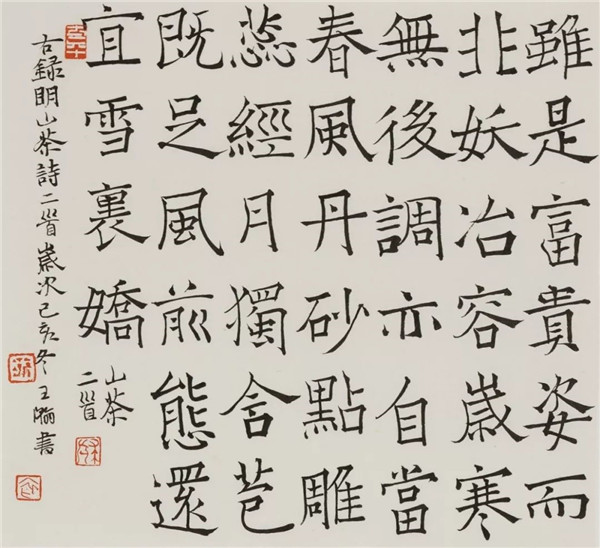 雖是富貴姿而
非妖冶容歲寒
無後調亦自當
春風丹砂點雕
蕊經月獨含苞
既足風前態還
宜雪裏嬌
山茶
二首
右錄明山茶詩二首歲次己亥冬王書